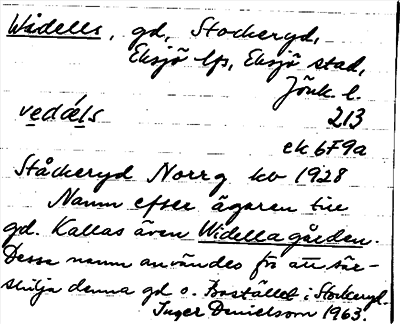 Widells, gd, Stockeryd,
Eksjö lfs, Eksjö stad,
Jönk. l.
vedǽls 213
ek 6F9a
Ståckeryd Norrg kv 1928
Namn efter ägaren till
gd. Kallas även Widellagården.
Dessa namn användes för att sär-
skilja denna gd o. Bostället i Stockeryd.
Inger Danielsson 1963.